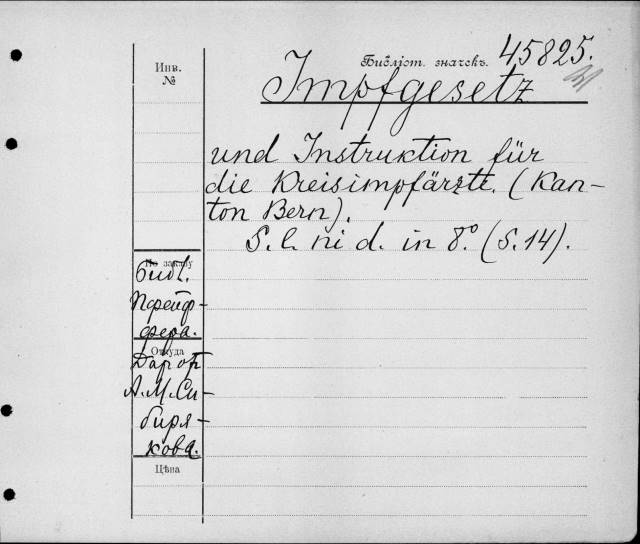 Инв.
№
Библіот. значекъ. 45825.
Impfgesetz
und Instruktion für
die Kreisimpfärzte. (Kan-
ton Bern).
S. l. ni d. in 8.º (S. 14).
По заказу
Библ.
Пфейф-
фера.
Откуда
Дар от
А. М. Си-
биря-
кова.
Цѣна